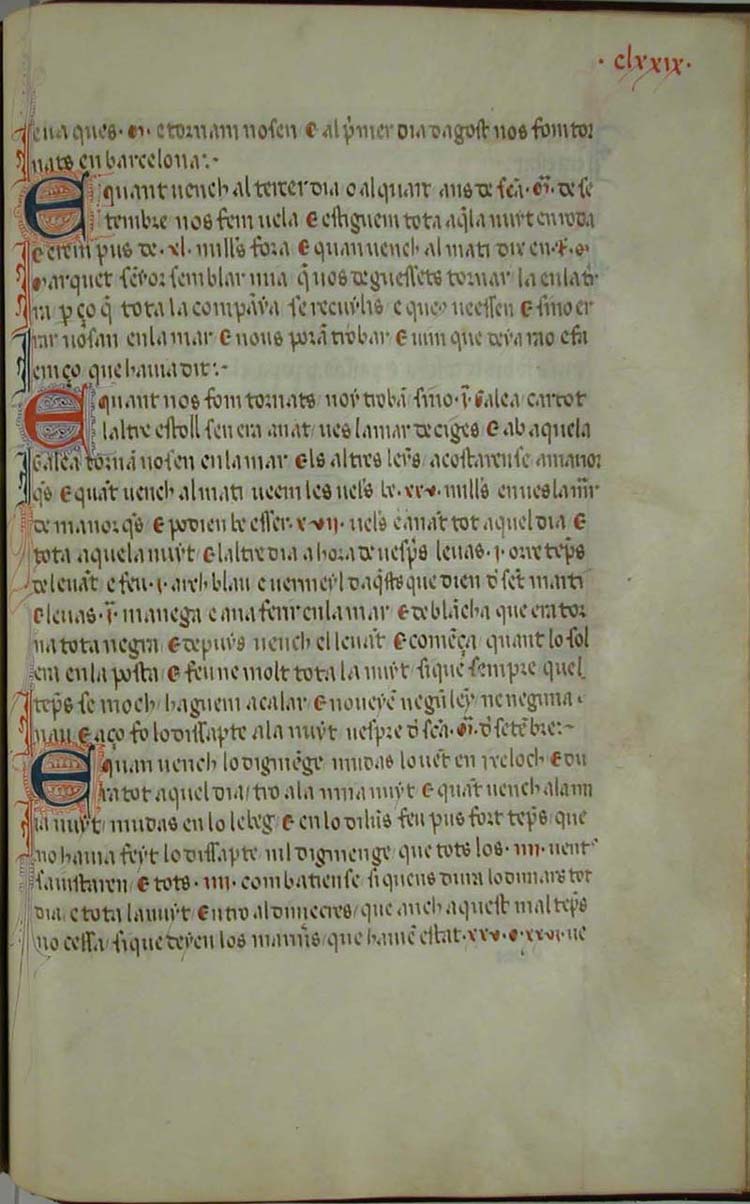 · clxxix ·
e tornam nosen E al pͥmer dia dagost nos fom tor
nats en barcelona :·
E quant uench al tercer dia o al quart ans de scā · M̄ · de se
tembre nos fem uela E estiguem tota aq̄la nuyt en roda
E erem pus de · xl · mills fora E quan uench al mati dix en · R ·
marquet senyor semblar mia q̄ uos deguessets tornar la en la ti
ra ꝑ ço q̄ tota la companya se recuylis e E sino er
rar uosan en la mar E nous porā trobar E uim que deya rao e fa
em ço que hauia dit :·
E quant nos fom tornats noy trobā sino · j̄ · Galea car tot
laltre estoll sen era anat ues la mar de ciges E ab aquela
Galea tornā nosen en la mar Els altres leys acostarense a manor
q̄s E quāt uench al mati ueem les uels be · xxv · mills en ues la mar
de manorq̄s E podien be esser · xvij · uels e anāt tot aquel dia E
tota aquela nuyt E laltre dia a hora de uesp̄s leuas · j · orre tēps
de leuāt e feu · j · arch blau e uermeyl daq̄sts que dien d̄ sēt marti
E leuas · j̄ · manega e ana ferir en la mar E de blācha que era tor
na tota negra E depuys uench el leuāt E comēça quant lo sol
era en la posta E feu ne molt tota la nuyt si quē sempre quel
tēps se moch haguem a calar E no ueyē negū ley ne neguna
nau E aço fo lo dissapte a la nuyt uespre d̄ scā · M̄ · d̄ setēbre :·
E quan uench lo digmēge mudas lo uēt en xeloch E du
ra tot aquel dia tro a la mia nuyt E quāt uench a la mi
ja nuyt mudas en lo lebeg E en lo dilūs feu pus fort tēps que
no hauia feyt lo dissapte nil digmenge que tots los · iiij · uents
samistaren E tots · iiij · combatiense si quens dura lo dimars tot
dia e tota la nuyt Entro al dimecres que anch aquest mal tēps
no cessa si que deyen los mariūs que hauiē estat · xxv · o · xxvi · ue